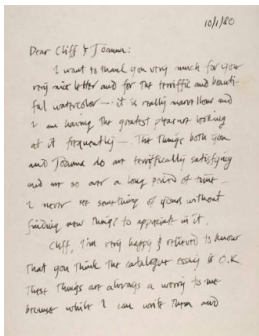 10/1/80
Dear Cliff & Joanna:
I want to thank you very much for your
very nice letter and for the terriffic and beauti-
ful watercolor — it is really marvellous and
I am having the greatest pleasure looking
at it frequently —. The things both you
and Joanna do are terrifically satisfying
and are so over a long period of time —
I never see something of yours without
finding new things to appreciate in it.
Cliff, I'm very happy & relieved to know
that you think the catalogue essay is O.K.
These things are always a worry to me
because while I can write them and